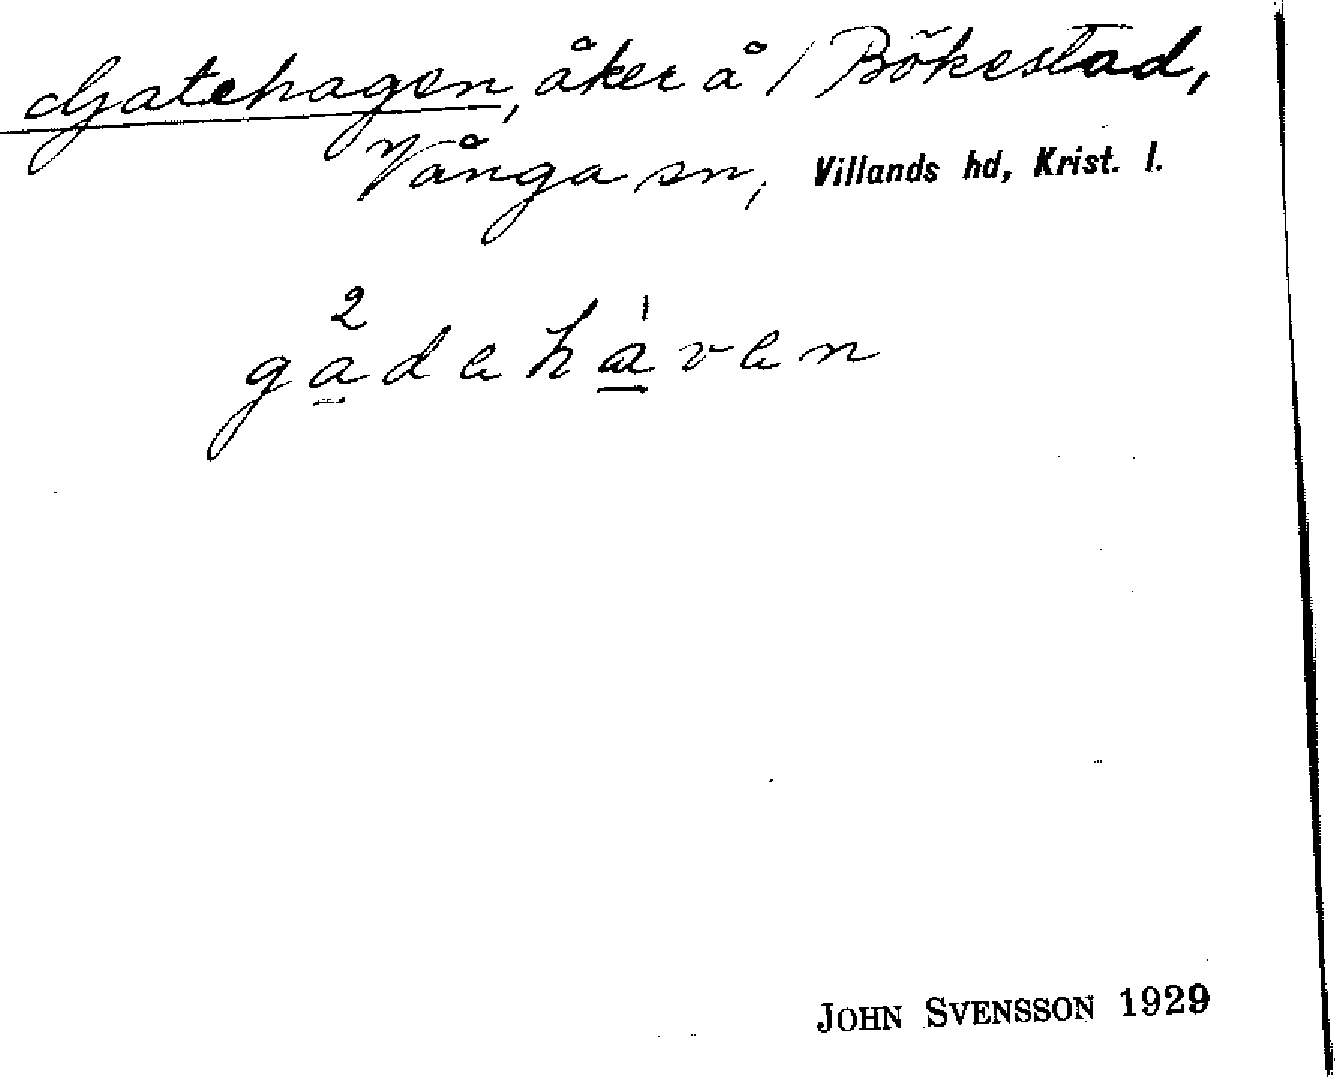 Gatehagen, åker å / Bökestad,
Vånga sn, Villands hd, Krist. l.
2
gadeháven
JOHN SVENSSON 1929